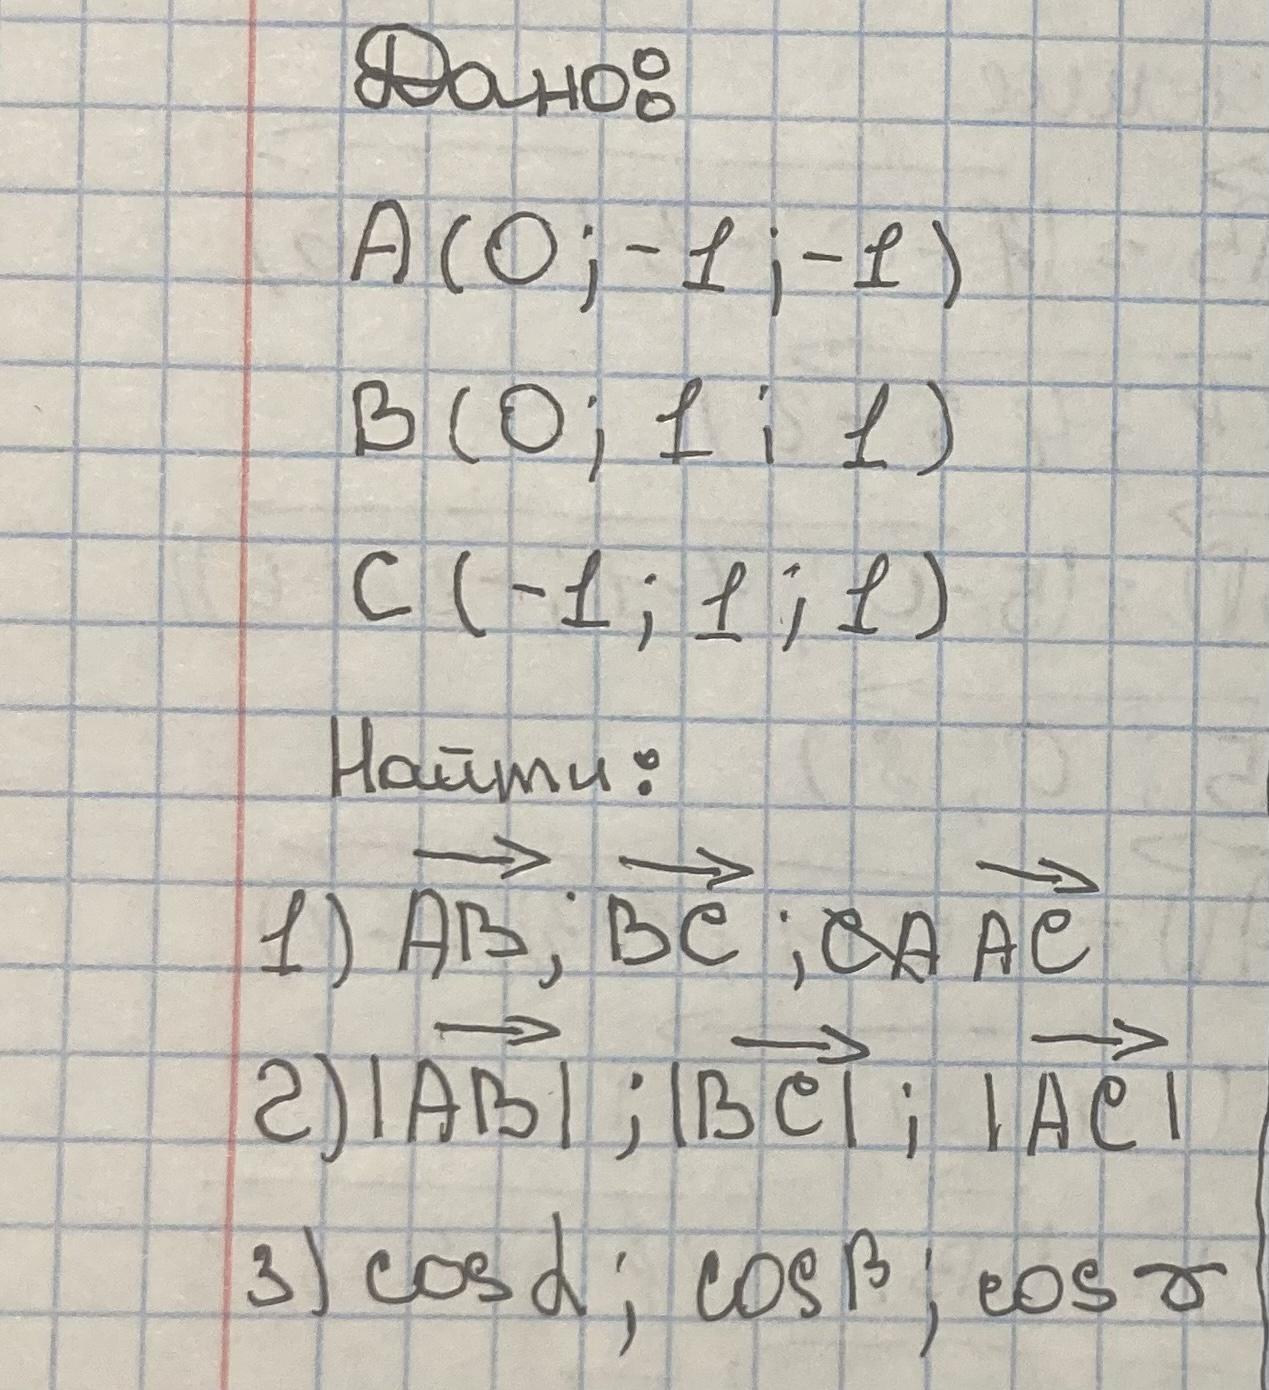 Дано:
A(0;-1;-1)
B(0; 1; 1)
C(-1; 1; 1)
Найти:
1) AB; BC; AC
2) |AB|; |BC|; |AC|
3) cos α; cos β; cos γ